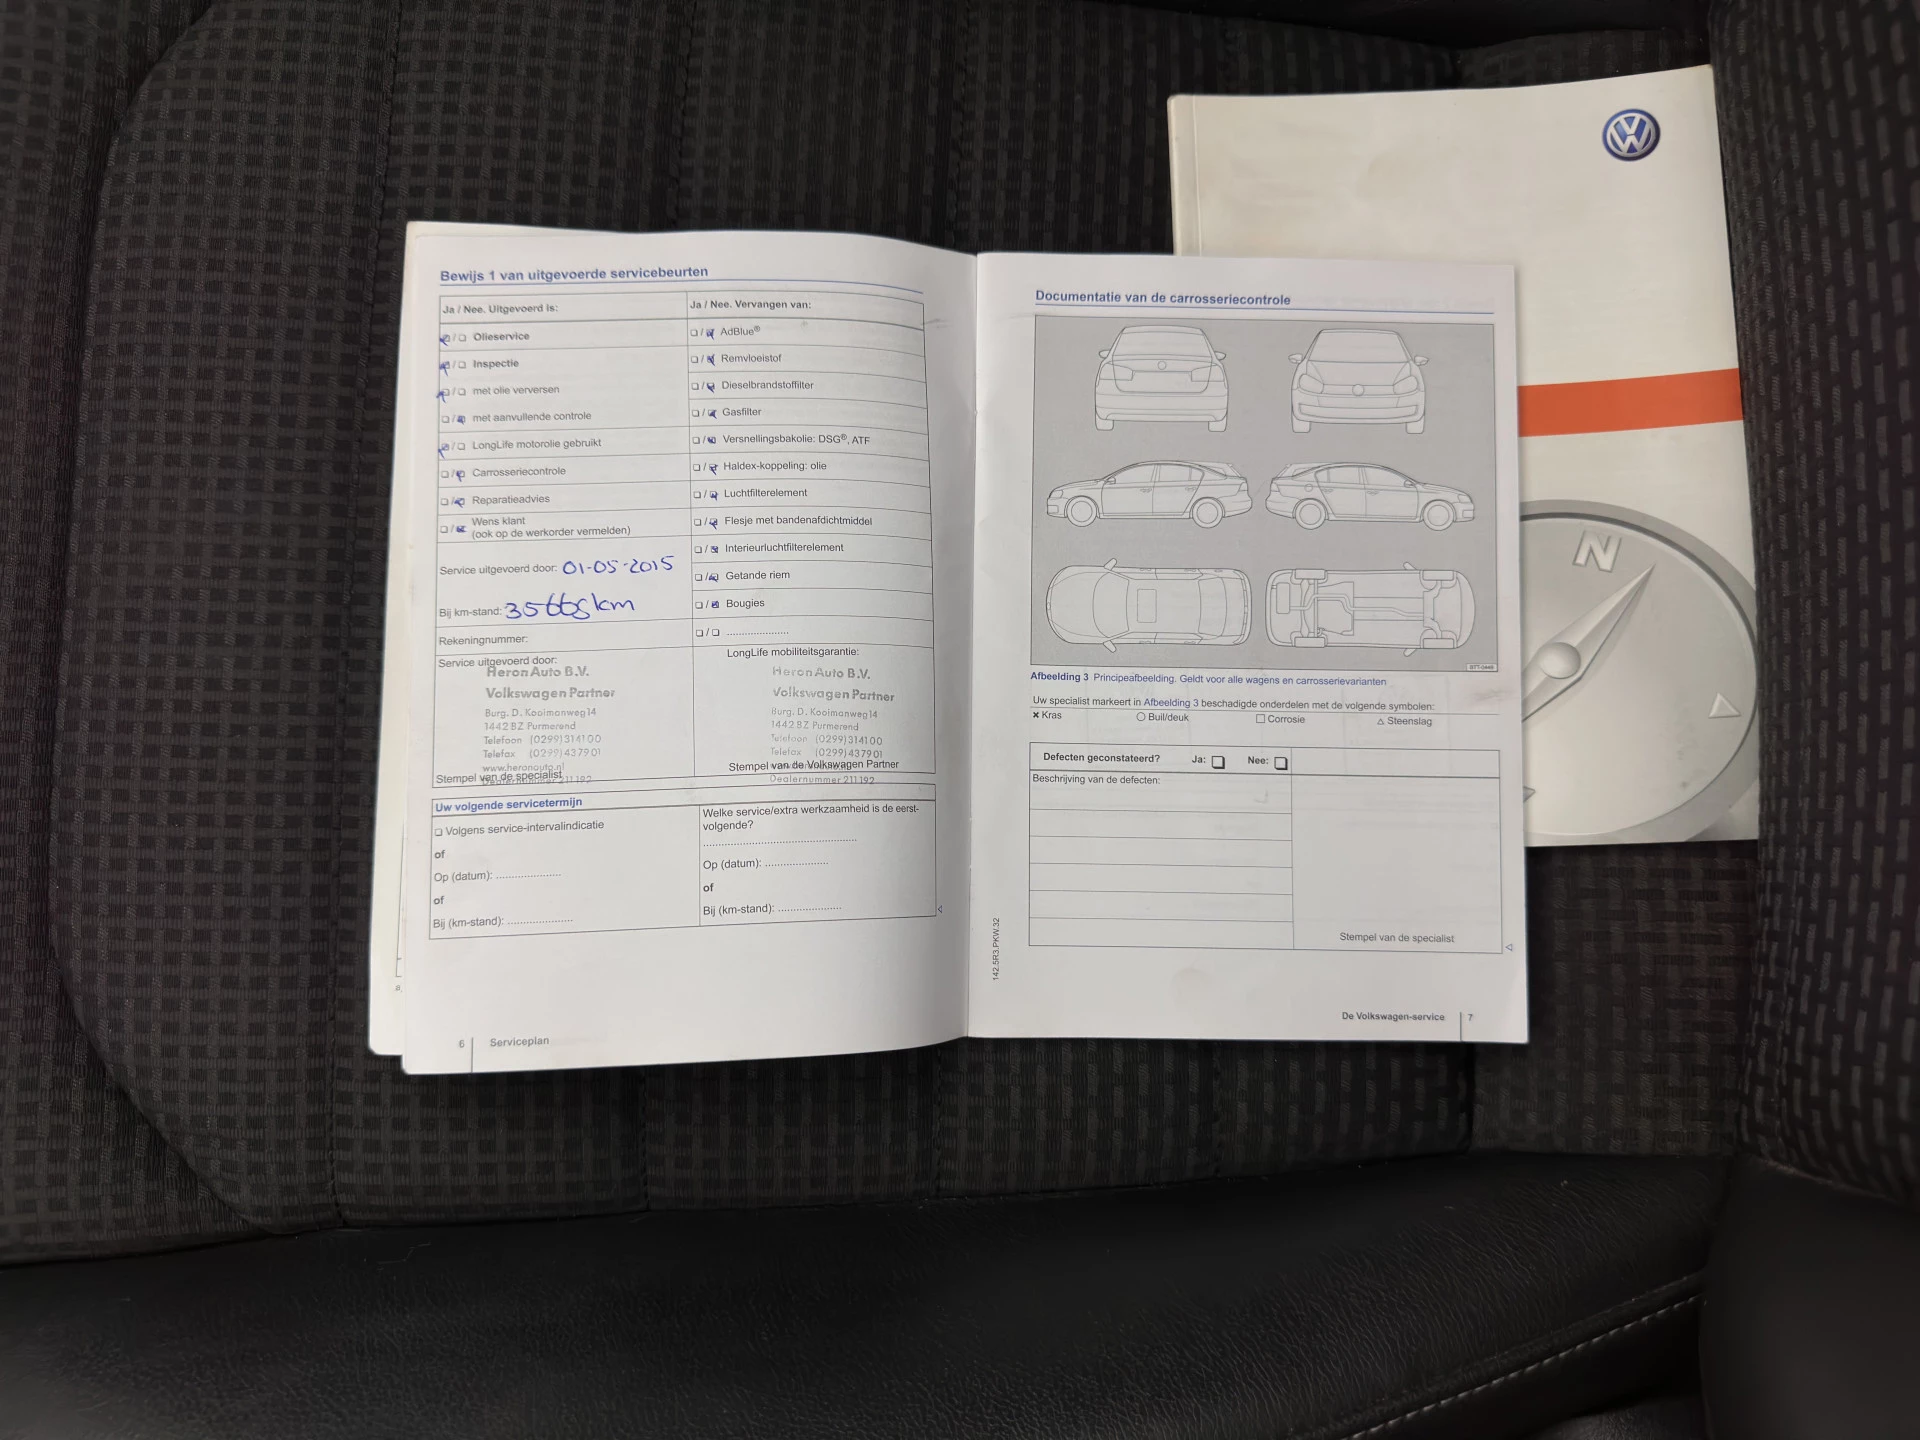 Bewijs 1 van uitgevoerde servicebeurten
Ja / Nee. Uitgevoerd is:
Olieservice
Inspectie
met olie verversen
met aanvullende controle
LongLife motorolie gebruikt
Carrosseriecontrole
Reparatieadvies
Wens klant
(ook op de werkorder vermelden)
Service uitgevoerd door: 01-05-2015
Bij km-stand: 35665km
Rekeningnummer:
Service uitgevoerd door:
Heron Auto B.V.
Volkswagen Partner
Burg. D. Kooimanweg 14
1442 BZ Purmerend
Telefoon (0299) 314100
Telefax (0299) 437901
www.heronauto.nl
Stempel van de specialist
Dealernummer 211192
Ja / Nee. Vervangen van:
AdBlue®
Remvloeistof
Dieselbrandstoffilter
Gasfilter
Versnellingsbakolie: DSG®, ATF
Haldex-koppeling: olie
Luchtfilterelement
Flesje met bandenafdichtmiddel
Interieurluchtfilterelement
Getande riem
Bougies
/ .....................
LongLife mobiliteitsgarantie:
Heron Auto B.V.
Volkswagen Partner
Burg. D. Kooimanweg 14
1442 BZ Purmerend
Telefoon (0299) 314100
Telefax (0299) 437901
Stempel van de Volkswagen Partner
Dealernummer 211192
Uw volgende servicetermijn
Volgens service-intervalindicatie
of
Op (datum): .....................
of
Bij (km-stand): .....................
Welke service/extra werkzaamheid is de eerst-
volgende?
Op (datum): .....................
of
Bij (km-stand): .....................
6 Serviceplan
Documentatie van de carrosseriecontrole
Afbeelding 3 Principeafbeelding. Geldt voor alle wagens en carrosserievarianten
Uw specialist markeert in Afbeelding 3 beschadigde onderdelen met de volgende symbolen:
Kras Buil/deuk Corrosie Steenslag
Defecten geconstateerd? Ja: Nee:
Beschrijving van de defecten:
Stempel van de specialist
142.5R3.PKW.32
De Volkswagen-service 7
VW
N